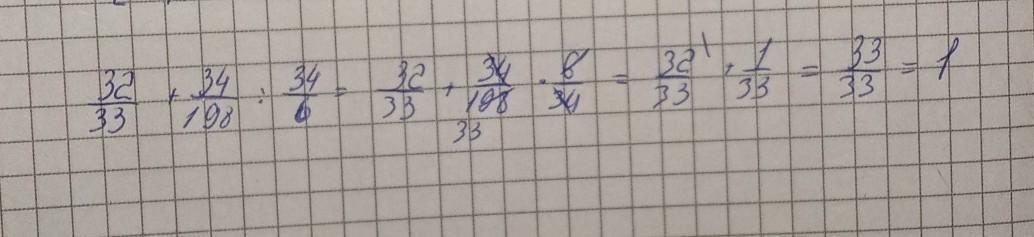 32/33 + 34/198 : 34/6 = 32/33 + 34/198 · 6/34 = 32/33 + 1/33 = 33/33 = 1
33